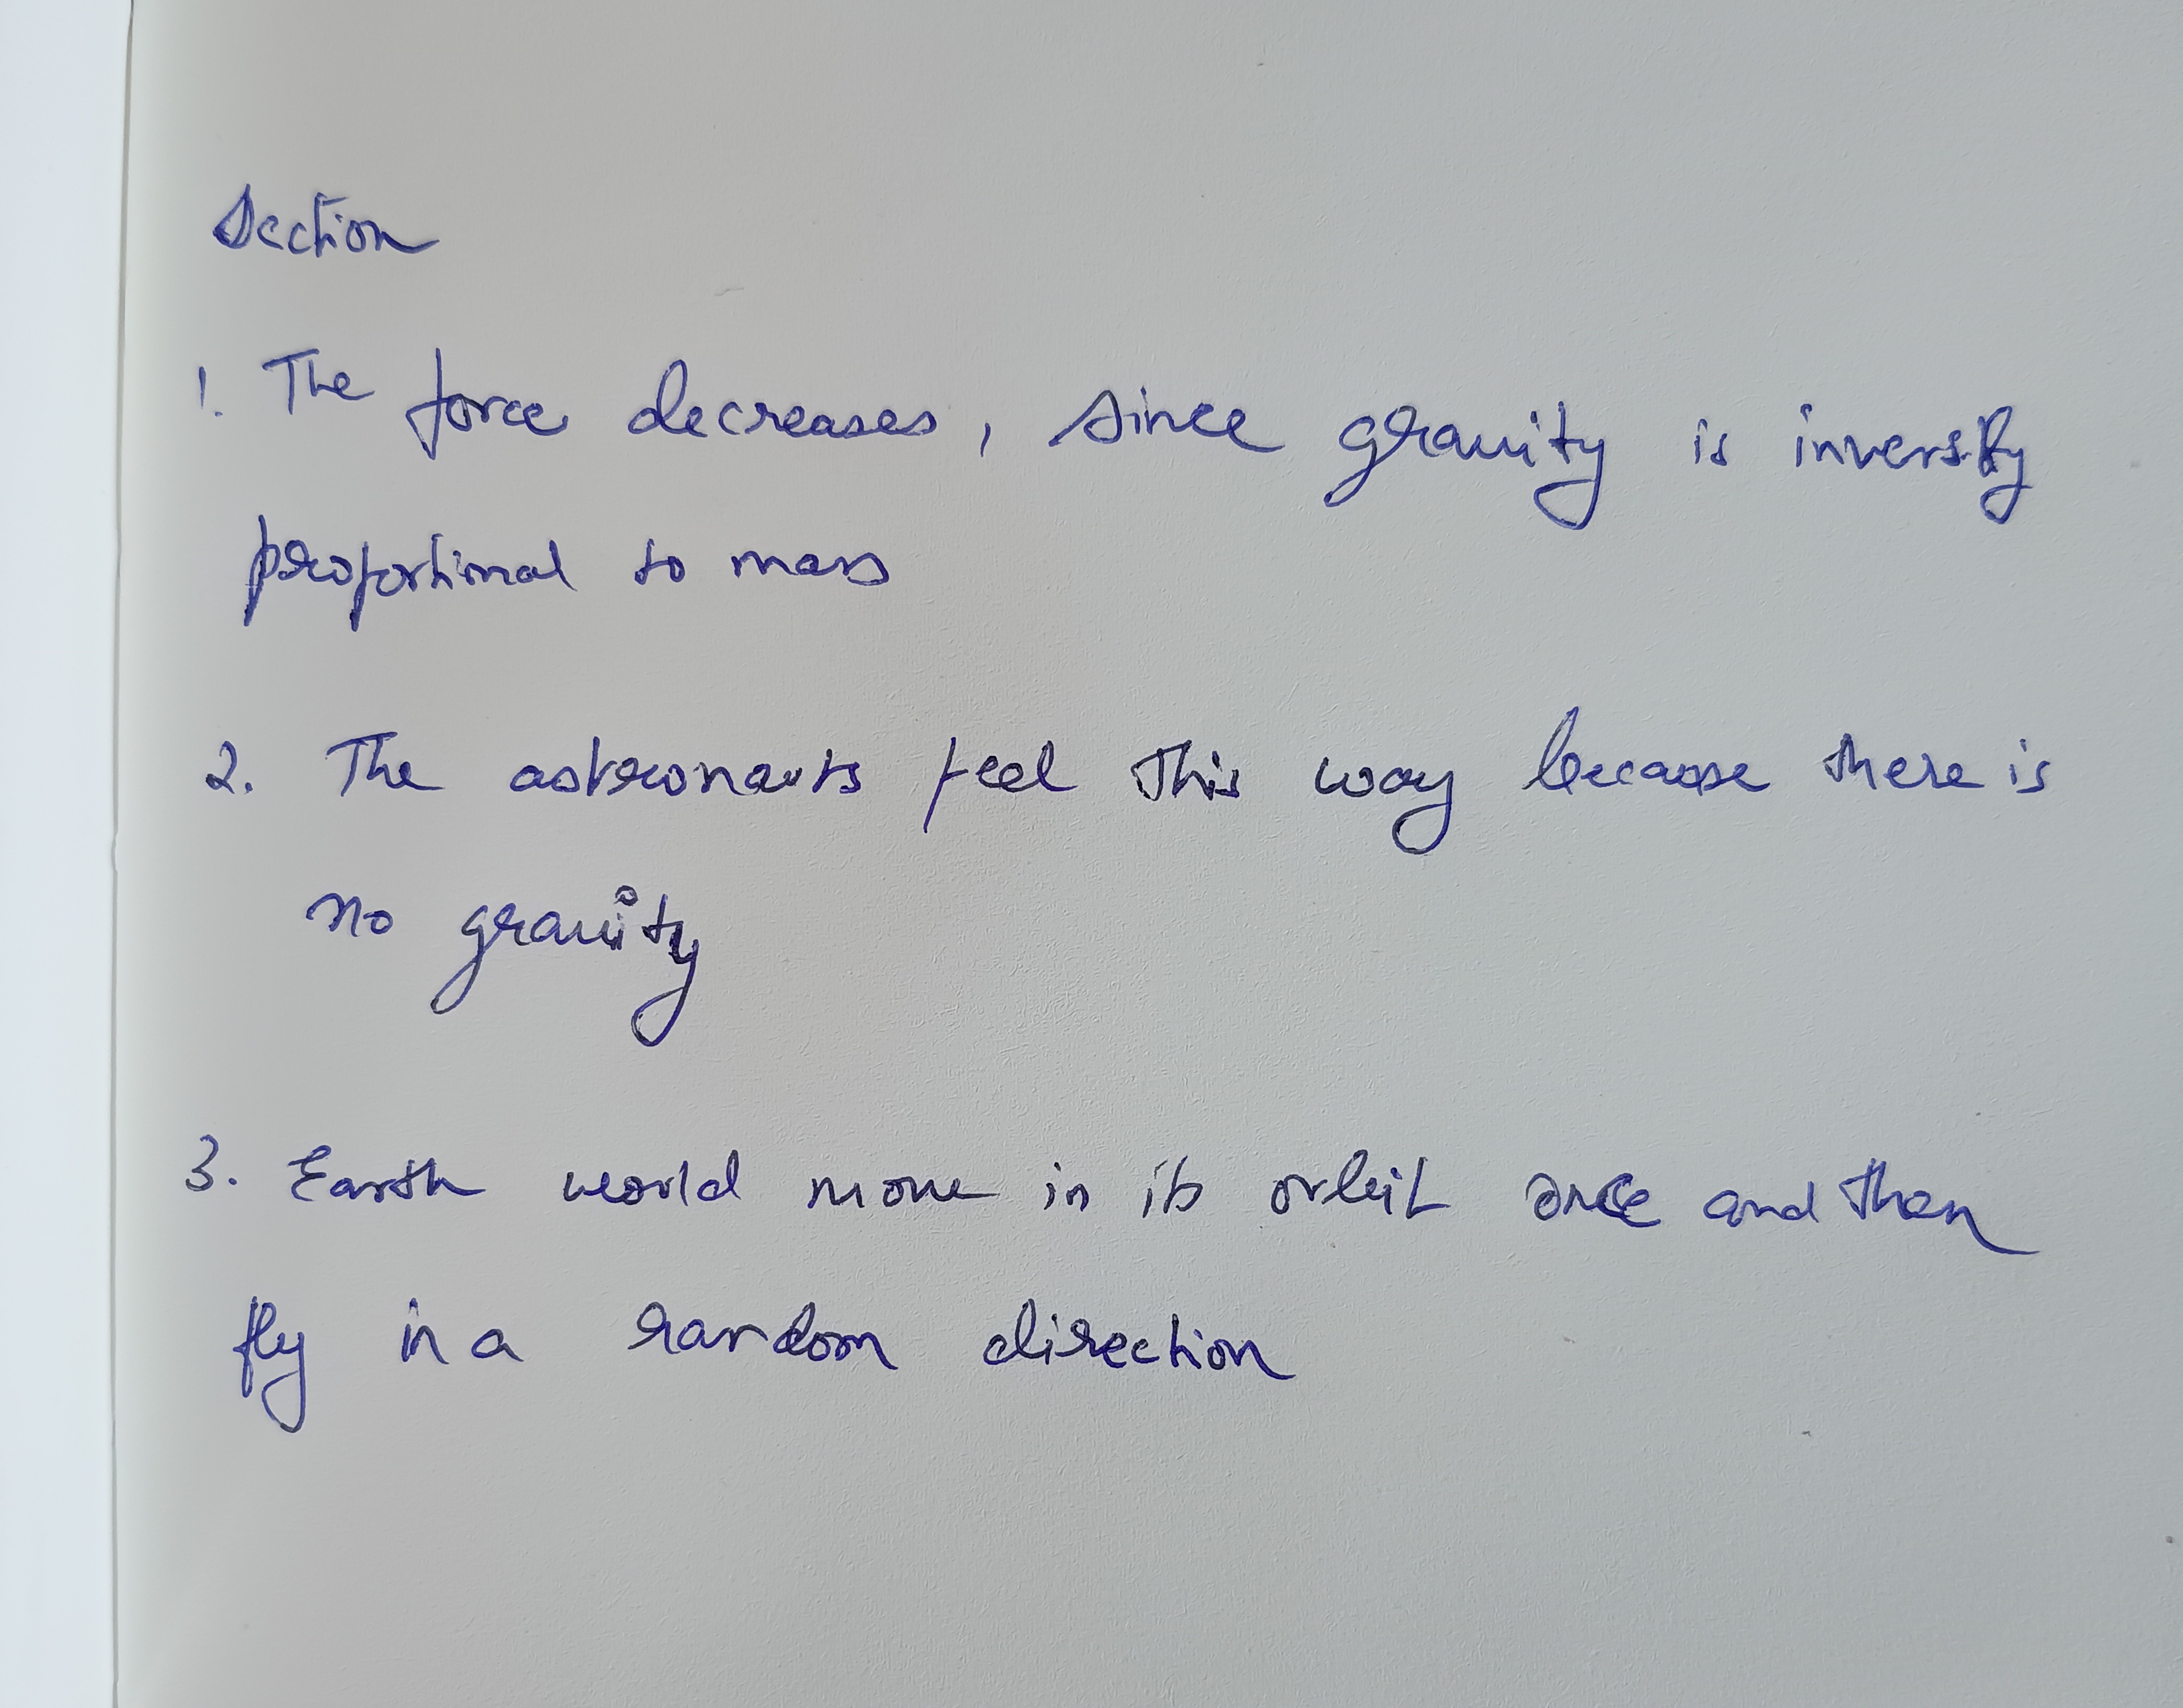 Section
1. The force decreases, since gravity is inversly
proportional to mass
2. The astronauts feel this way because there is
no gravity
3. Earth would move in its orbit once and then
fly in a random direction